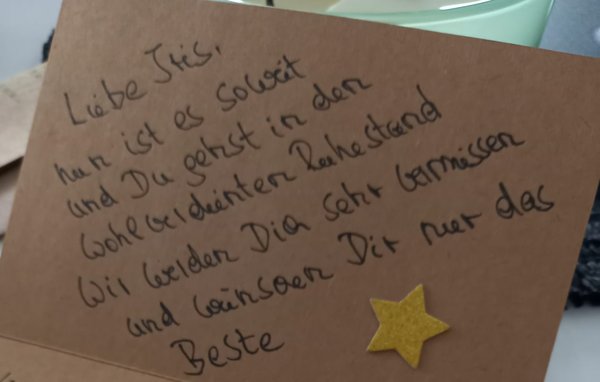 Liebe Iris,
nun ist es soweit
und Du gehst in den
wohlverdienten Ruhestand
Wir werden Dich sehr vermissen
und wünschen Dir nur das
Beste